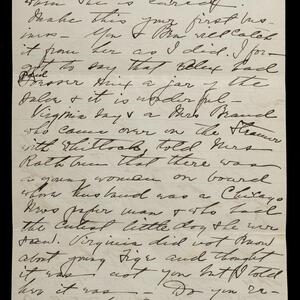 when she is cured.
Make this your first bus-
iness - You & Ben will catch
it from her as I did. I for-
got to say that Alex said
Dresser Sent a jar of the
Salve & it is wonderful -
Virginia says a Mrs Brand
who came over on the Steamer
with Whitlock, told Mrs
Rathbun that there was
a young woman on board
whose husband was a Chicago
News paper man & who had
the cutest little dog she ever
saw. Virginia did not know
about your Tige and thought
it was not you but I told
her it was - Do you re-